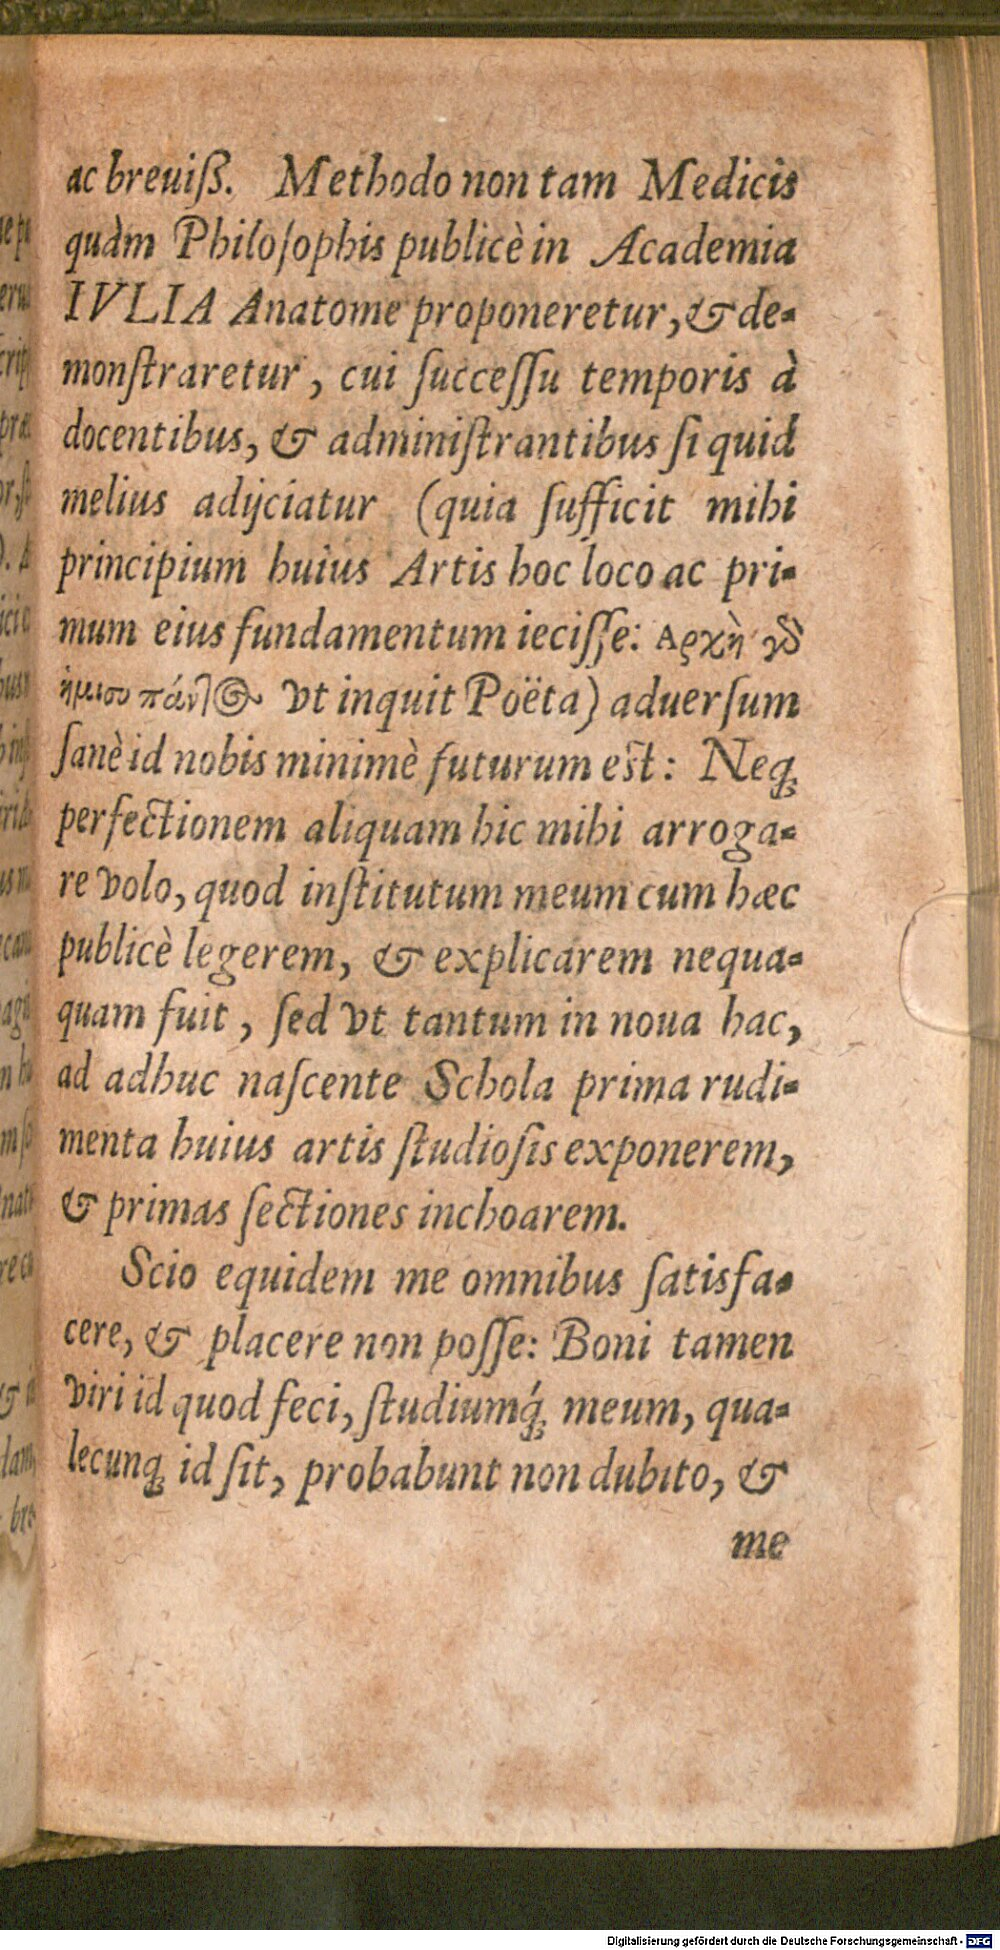 ac breuiß. Methodo non tam Medicis
quàm Philoſophis publicè in Academia
IVLIA Anatome proponeretur, & de-
monſtraretur, cui ſucceſſu temporis à
docentibus, & adminiſtrantibus ſi quid
melius adijciatur (quia ſufficit mihi
principium huius Artis hoc loco ac pri-
mum eius fundamentum ieciſſe: Αρχὴ γὸ
ἥμισυ πάντος vt inquit Poëta) aduerſum
ſanè id nobis minimè futurum eſt: Neq;
perfectionem aliquam hic mihi arroga-
re volo, quod inſtitutum meum cum hæc
publicè legerem, & explicarem nequa-
quam fuit, ſed vt tantum in noua hac,
ad adhuc naſcente Schola prima rudi-
menta huius artis ſtudioſis exponerem,
& primas ſectiones inchoarem.
Scio equidem me omnibus ſatisfa-
cere, & placere non poſſe: Boni tamen
viri id quod feci, ſtudiumq́; meum, qua-
lecunq; id ſit, probabunt non dubito, &
me
Digitalisierung gefördert durch die Deutsche Forschungsgemeinschaft - DFG